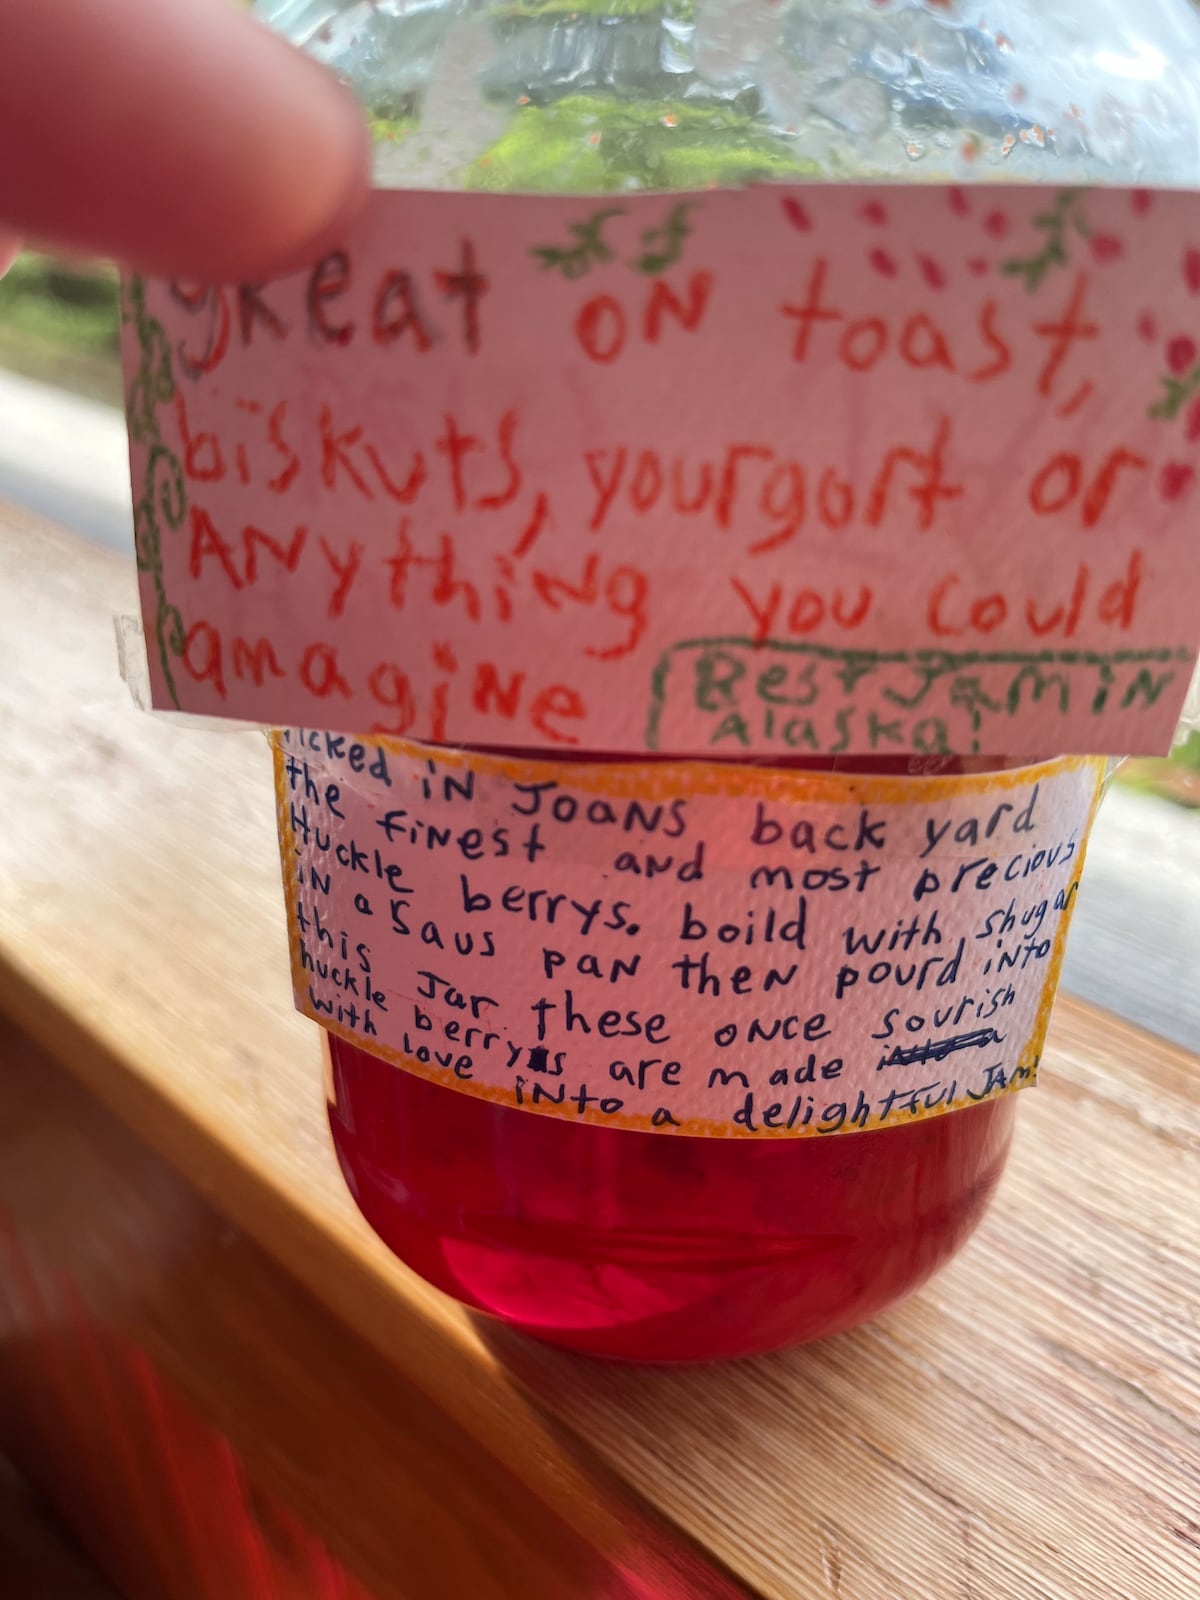 great on toast,
biskuts, yourgort or
Anything you could
amagine
Best Jam in
Alaska!
Picked in Joans back yard
the finest and most precious
Huckle berrys. boild with shugar
in a saus pan then pourd into
this Jar these once sourish
huckle berrys are made
with love into a delightful JAM!